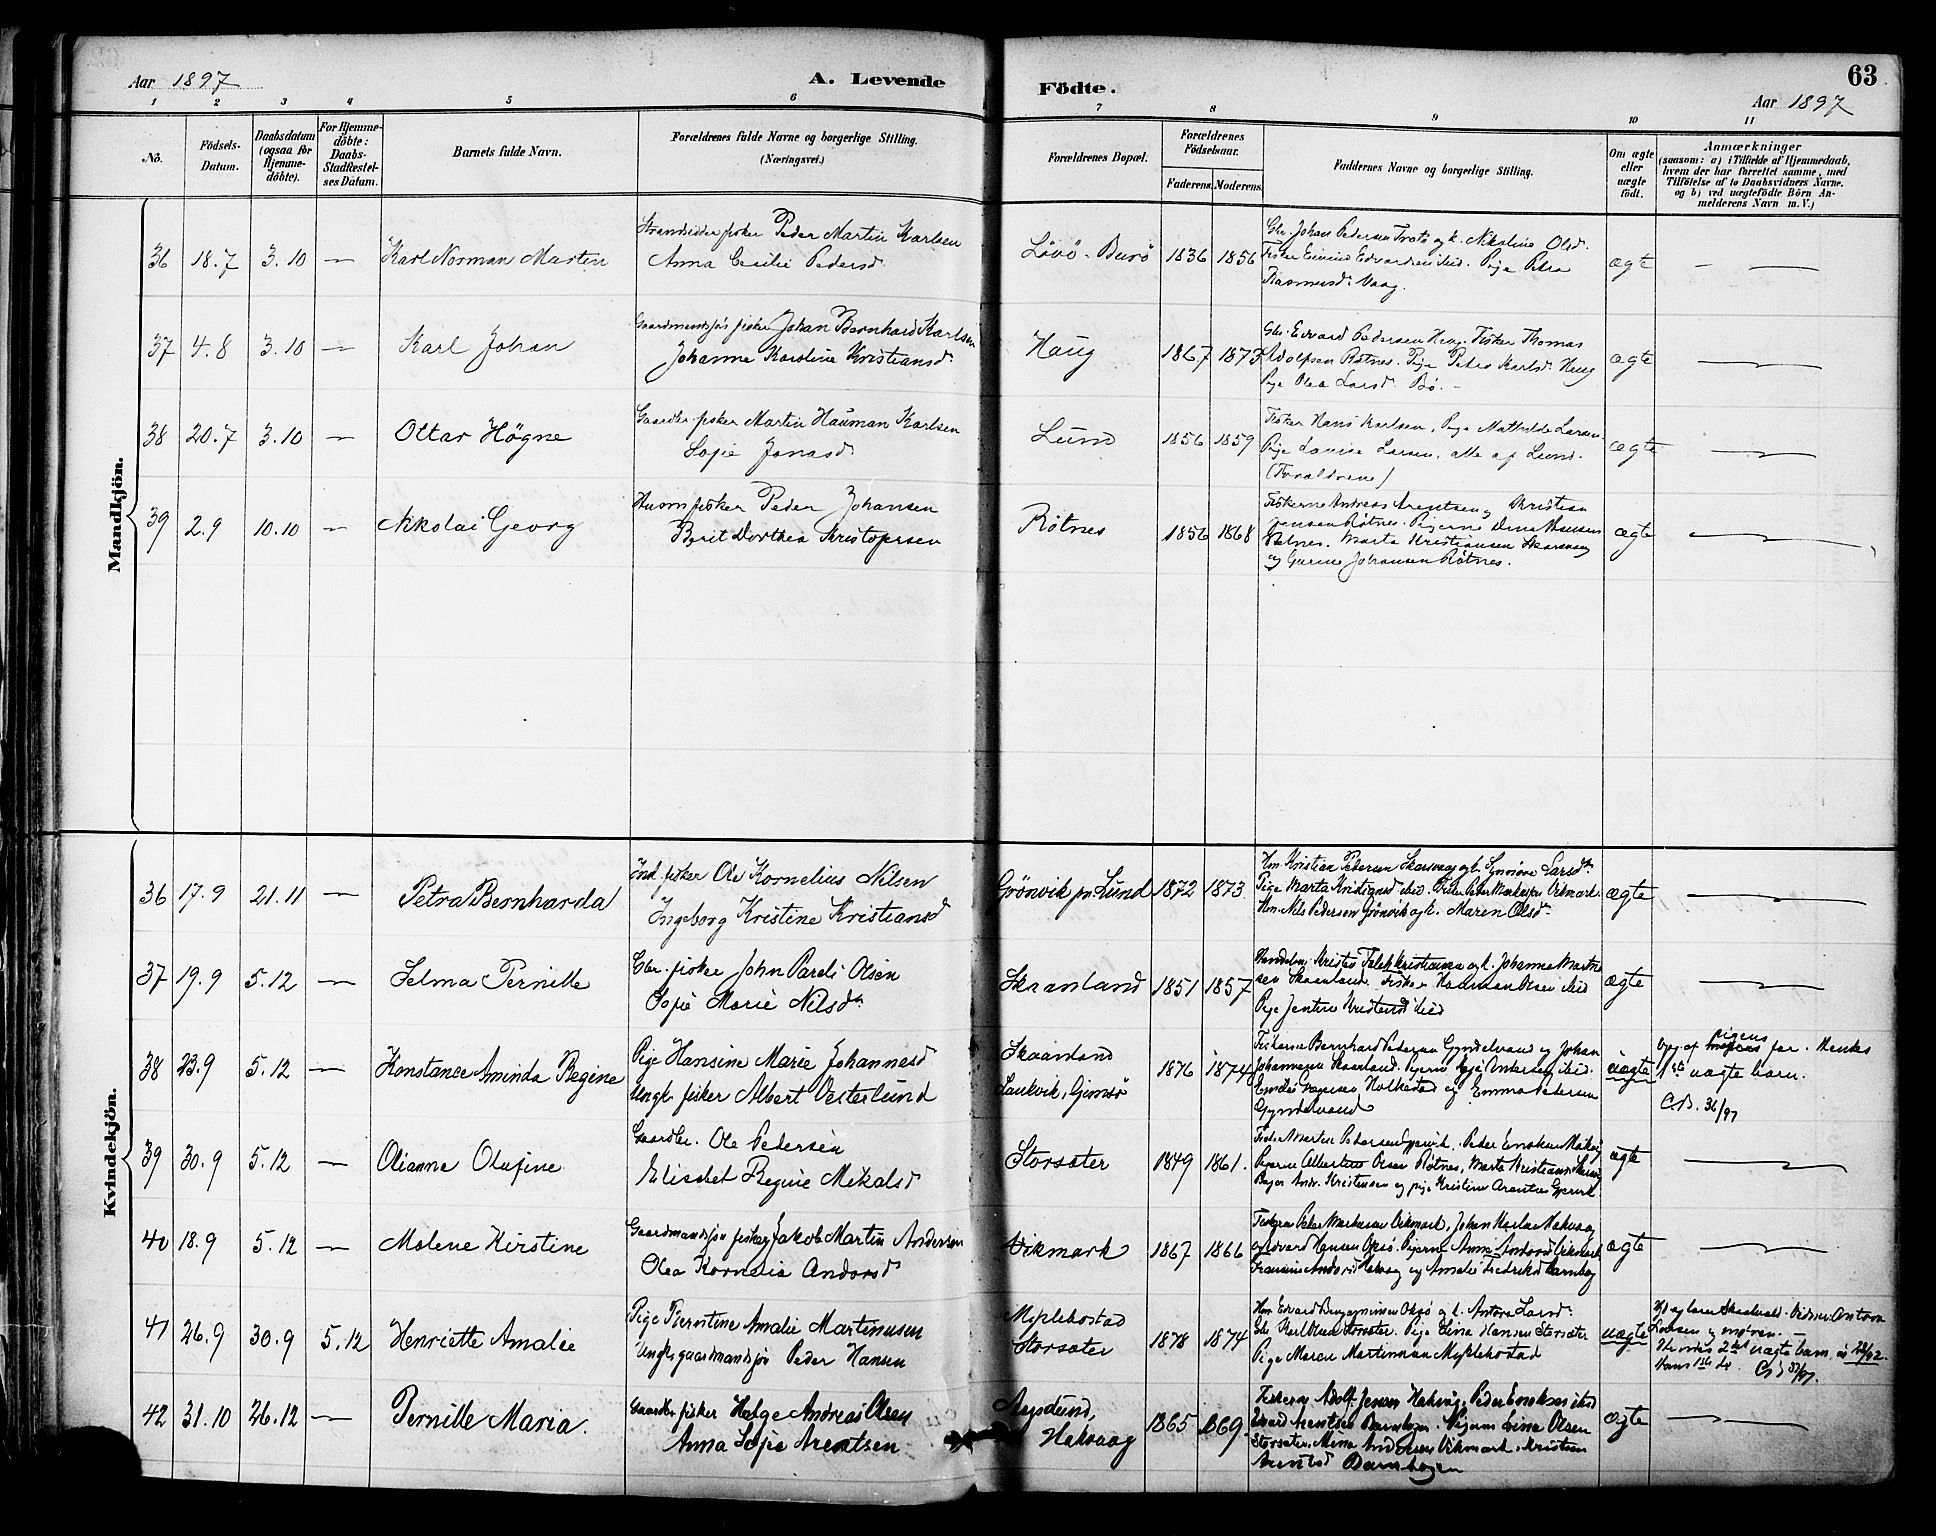 Aar 1897
A. Levende
Födte.
63
Aar 1897
1 2 3 4 5 6 7 8 9 10 11
No.
Födsels-
Datum.
Daabsdatum
(ogsaa for
Hjemme-
döbte).
For Hjemme-
döbte:
Daabs-
Stadfæstel-
ses Datum.
Barnets fulde Navn.
Forældrenes fulde Navne og borgerlige Stilling.
(Næringsvei.)
Forældrenes Bopæl.
Forældrenes
Födselsaar.
Faderens.
Moderens.
Faddernes Navne og borgerlige Stilling.
Om ægte
eller
uægte
födt.
Anmærkninger
(saasom: a) i Tilfælde af Hjemmedaab,
hvem der har forrettet samme, med
Tilföielse af to Daabsvidners Navne.
og b) ved uægtefödte Börn An-
melderens Navn m. V.)
Mandkjön.
36 18.7 3.10 — Karl Norman Martin
Strandsidder fisker Peder Martin Karlsen
Anna Cecilie Pedersd.
Lövö - Burö 1836 1856
Gbr. Johan Pedersen og k. Nikoline Olsd.
Fisker Eivind Edvardsen ibid. Pige Petra
Rasmusd. Vaag.
ægte —
37 4.8 3.10 — Karl Johan
Gaardmandssøn fisker Johan Bernhard Karlsen
Johanna Karolina Kristiansd.
Haug 1867 1873
Gbr. Edvard Pedersen Haug. Fisker Thomas
Adolfsen Røtnes. Pige Petra Karlsd. Haug
Pige Olea Larsd. Bø. -
ægte —
38 20.7 3.10 — Ottar Högne
Gaardbr. fisker Martin Hauman Karlsen
Sofie Jonasd.
Lund 1856 1859
Fisker Hans Karlsen, Pige Mathilde Larsen
Pige Louise Larsen, alle af Lund.
(Forældrene)
ægte —
39 2.9 10.10 — Nikolai Georg
Husm. fisker Peder Johansen
Berit Dorthea Kristofersen
Røtnes 1856 1868
Fiskerne Andreas Arentsen og Kristian
Jensen Røtnes. Pigerne Hansen
Marta Kristiansen Skarsvaag
og Gurine Johansen Røtnes.
ægte —
Kvindekjön.
36 17.9 21.11 — Petra Bernharda
Ind. fisker Ole Kornelius Nilsen
Ingeborg Kristine Kristiansd
Grönvik pr. Lund 1872 1873
Hm. Kristian Pedersen Skarsvaag og k. Larsd.
Pige Marta Kristiansd ibid. Fisker Peter Markussen Vikmark.
Hm. Nils Pedersen Grönvik og k. Maren Olsd.
ægte —
37 19.9 5.12 — Selma Pernille
Gbr. fisker John Pareli Olsen
Sofie Marie Nilsd.
Skaanland 1851 1857
Kristiansen og k. Johanna
Skaanland. Fisker Hauman Olsen ibid
Pige Jentine Kristensd ibid
ægte —
38 23.9 5.12 — Konstance Aminda Regine
Pige Hansine Marie Johannesd
Ungk. fisker Albert Vesterlund
Skaanland
Laukvik, Gimsø
1876 1874
Fiskerne Bernhard Pedersen og Johan
Johannesen Skaanland. Pigerne Andersen ibid.
Holkestad og Emma Pedersen
uægte
Opg. af pigens far. Henes
1ste uægte barn.
C.B. 36/97
39 30.9 5.12 — Olianna Olufine
Gaardbr. Ole Pedersen
Elisabet Regine Mikalsd
Storsæter 1849 1861.
Fisker Martin Pedersen
Pigerne Albertine Olsen Røtnes, Marta Kristiansen
Kristensen og pige Kristine Arentsen
ægte —
40 18.9 5.12 — Malene Kirstine
Gaardmandssøn fisker Jakob Martin Andersen
Olea Kornelia Andorsd
Vikmark 1867 1866
Fiskerne Peter Markussen Vikmark, Johan Hakvaag
Edvard Hansen Oksø. Pigerne Anna Andorsd Vikmark
Andorsd Hakvaag og Amalie Fredriksd
ægte —
41 26.9 30.9 5.12 Henriette Amalie
Pige Bjerntine Amalie Martinusen
Ungk. gaardmandssøn Peder Hansen
Myklebostad
Storsæter
1878 1874
Hm. Edvard Benjaminsen Oksø og k. Antora Larsd.
Gbr. Karl Olsen Storsæter. Pige Lina Hansen Storsæter
Pige Maren Martinusen Myklebostad
uægte
Vidner Antona
Hendes 2det uægte barn
Hans 1ste
42 31.10 26.12 — Pernille Maria.
Gaardbr. fisker Helge Andreas Olsen
Anna Sofie Arentsen
Hakvaag 1865 1869.
Fiskerne Adolf Jensen Hakvåg, Peder Enoksen ibid
Edvard Arentsen Barnhogen. Pigerne Lina Olsen
Storsæter, Mina Andersen Vikmark, Kristine
Arentsd Barnhogen
ægte —